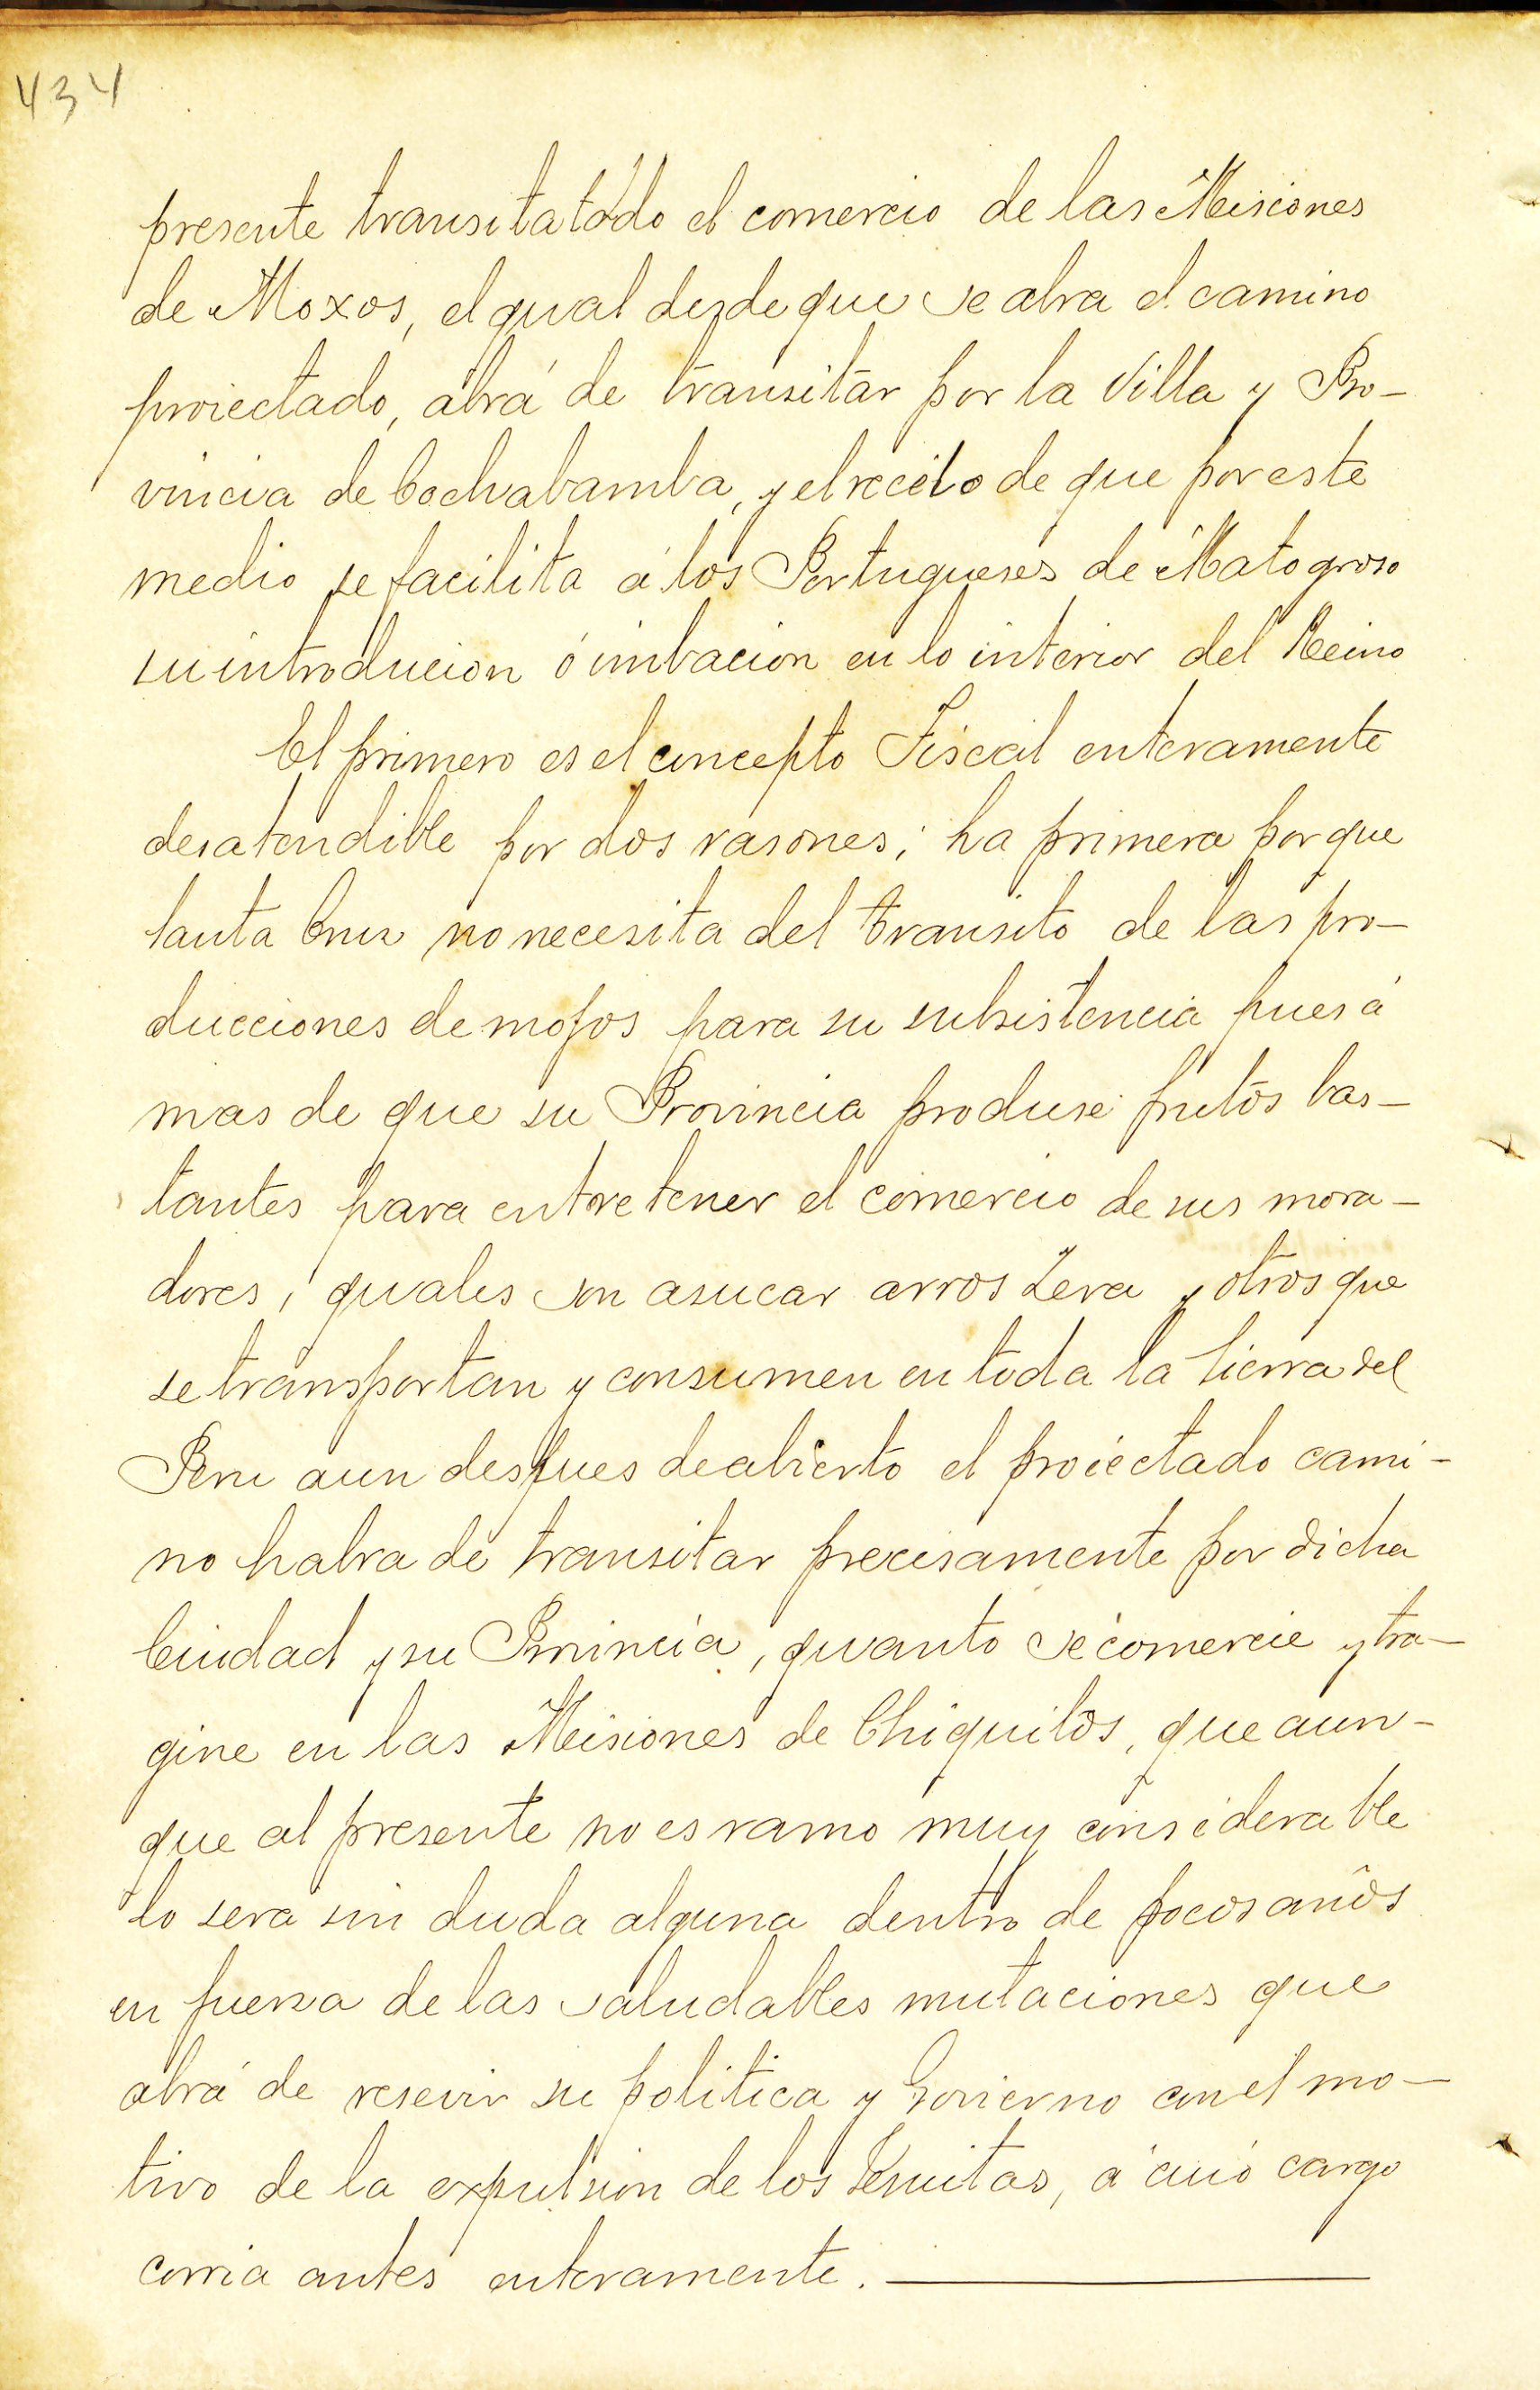 434
presente transita todo el comercio de las Misiones
de Moxos, el qual desde que se abra el camino
proiectado, abrá de transitar por la Villa y Pro-
vincia de Cochabamba, y el recelo de que por este
medio se facilita á los Portugueses de Matogroso
su introducion ó imbacion en lo interior del Reino
El primero es el concepto Fiscal enteramente
desatendible por dos rasones; La primera por que
Santa Crus no necesita del transito de las pro-
ducciones de mojos para su subsistencia pues á
mas de que su Provincia produse frutos bas-
tantes para entretener el comercio de sus mora-
dores, quales son asucar arros Zera y otros que
se transportan y consumen en toda la tierra del
Peru aun despues de abierto el proiectado cami-
no habra de transitar precisamente por dicha
Ciudad y su Provincia, quanto se comercie y tra-
gine en las Misiones de Chiquitos, que aun-
que al presente no es ramo muy considerable
lo sera sin duda alguna dentro de pocos años
en fuerza de las saludables mutaciones que
abrá de resevir su politica y Govierno con el mo-
tivo de la expulsion de los Jesuitas, á cuió cargo
corria antes enteramente.